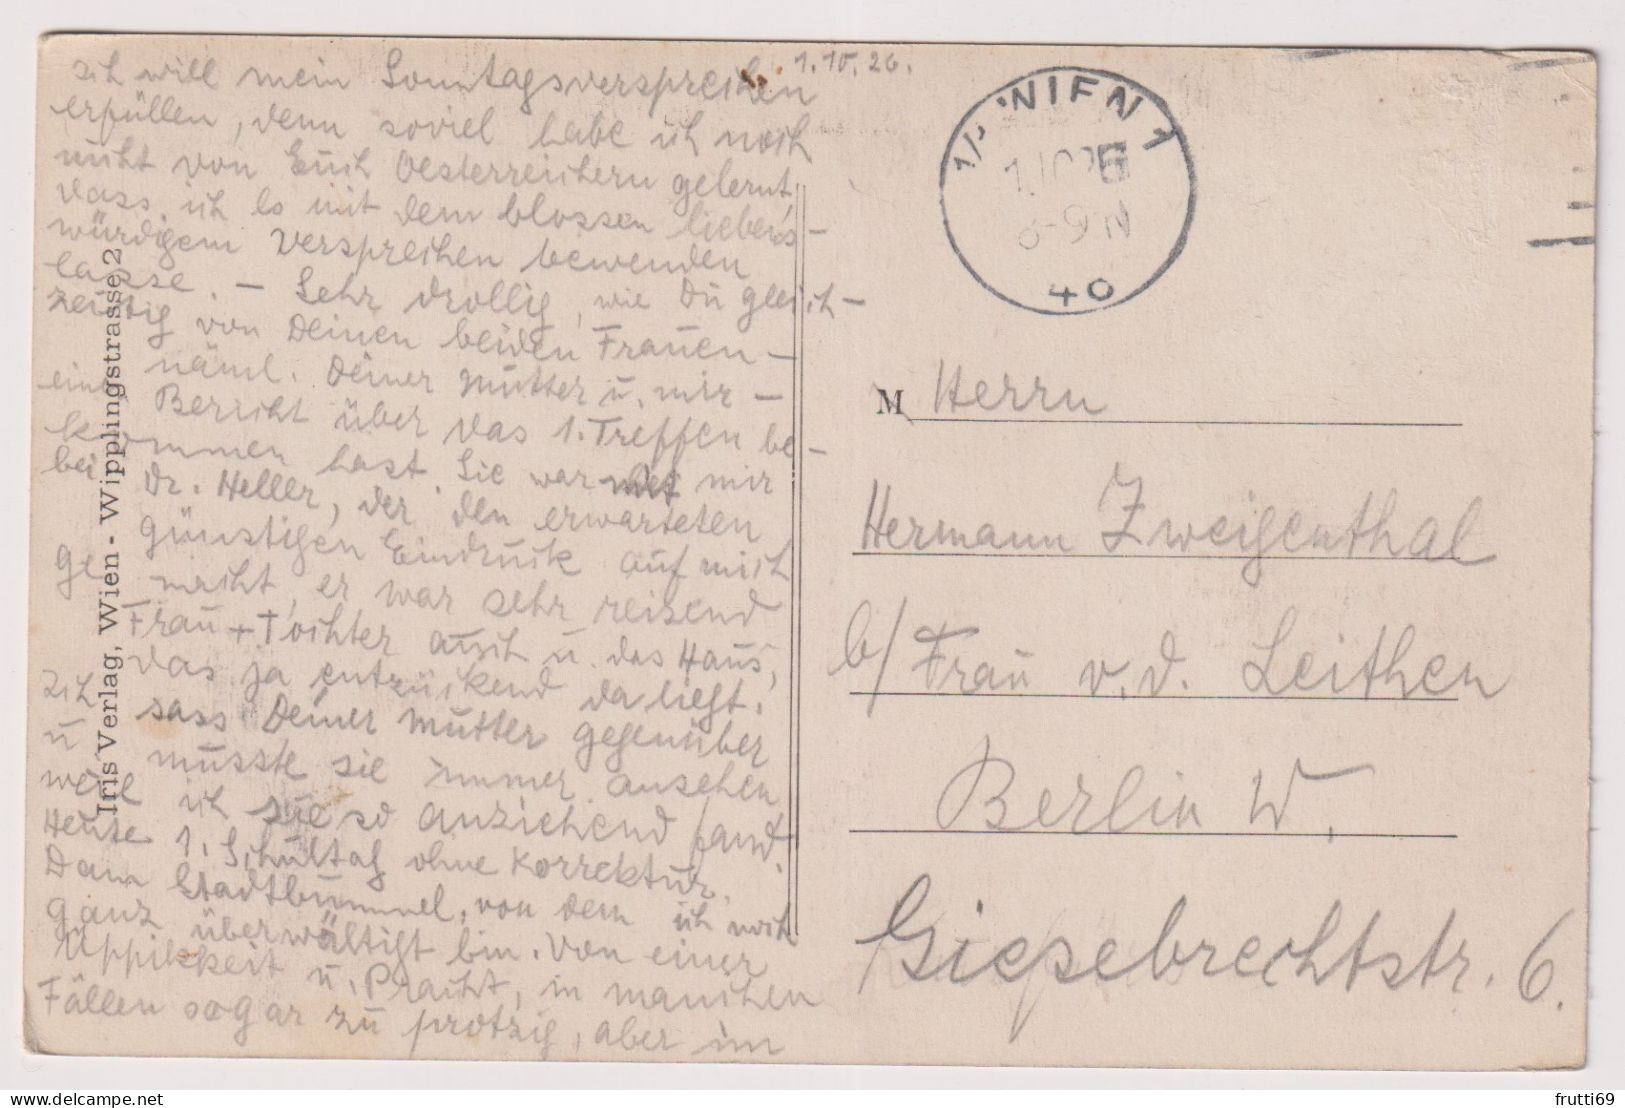 1.10.26.
ich will mein Sonntagsversprechen
erfüllen, denn soviel habe ich noch
nicht von Euch Oesterreichern gelernt,
dass ich es mit dem blossen liebens-
würdigem Versprechen bewenden
lasse. – Sehr drollig, wie Du gleich-
zeitig von Deinen beiden Frauen –
näml. Deiner Mutter u. mir –
einen Bericht über das 1. Treffen be-
kommen hast. Sie war mit mir
bei Dr. Heller, der den erwarteten
günstigen Eindruck auf mich
gemacht, er war sehr reizend
Frau + Tochter auch u. das Haus,
das ja entzückend da liegt.
Ich sass Deiner Mutter gegenüber
u. musste sie immer ansehen
weil ich sie so anziehend fand.
Heute 1. Schultag ohne Korrektur.
Dann Stadtbummel, von dem ich noch
ganz überwältigt bin. Von einer
Üppikkeit u. Pracht, in manchen
Fällen sogar zu protzig, aber im
Iris Verlag, Wien - Wipplingstrasse 2
1/1 WIEN 1
1.X.26
8-9 N
40
M Herrn
Hermann Zweigenthal
b/ Frau v. d. Leithen
Berlin W.
Giesebrechtstr. 6.
frutti69
delcampe.net